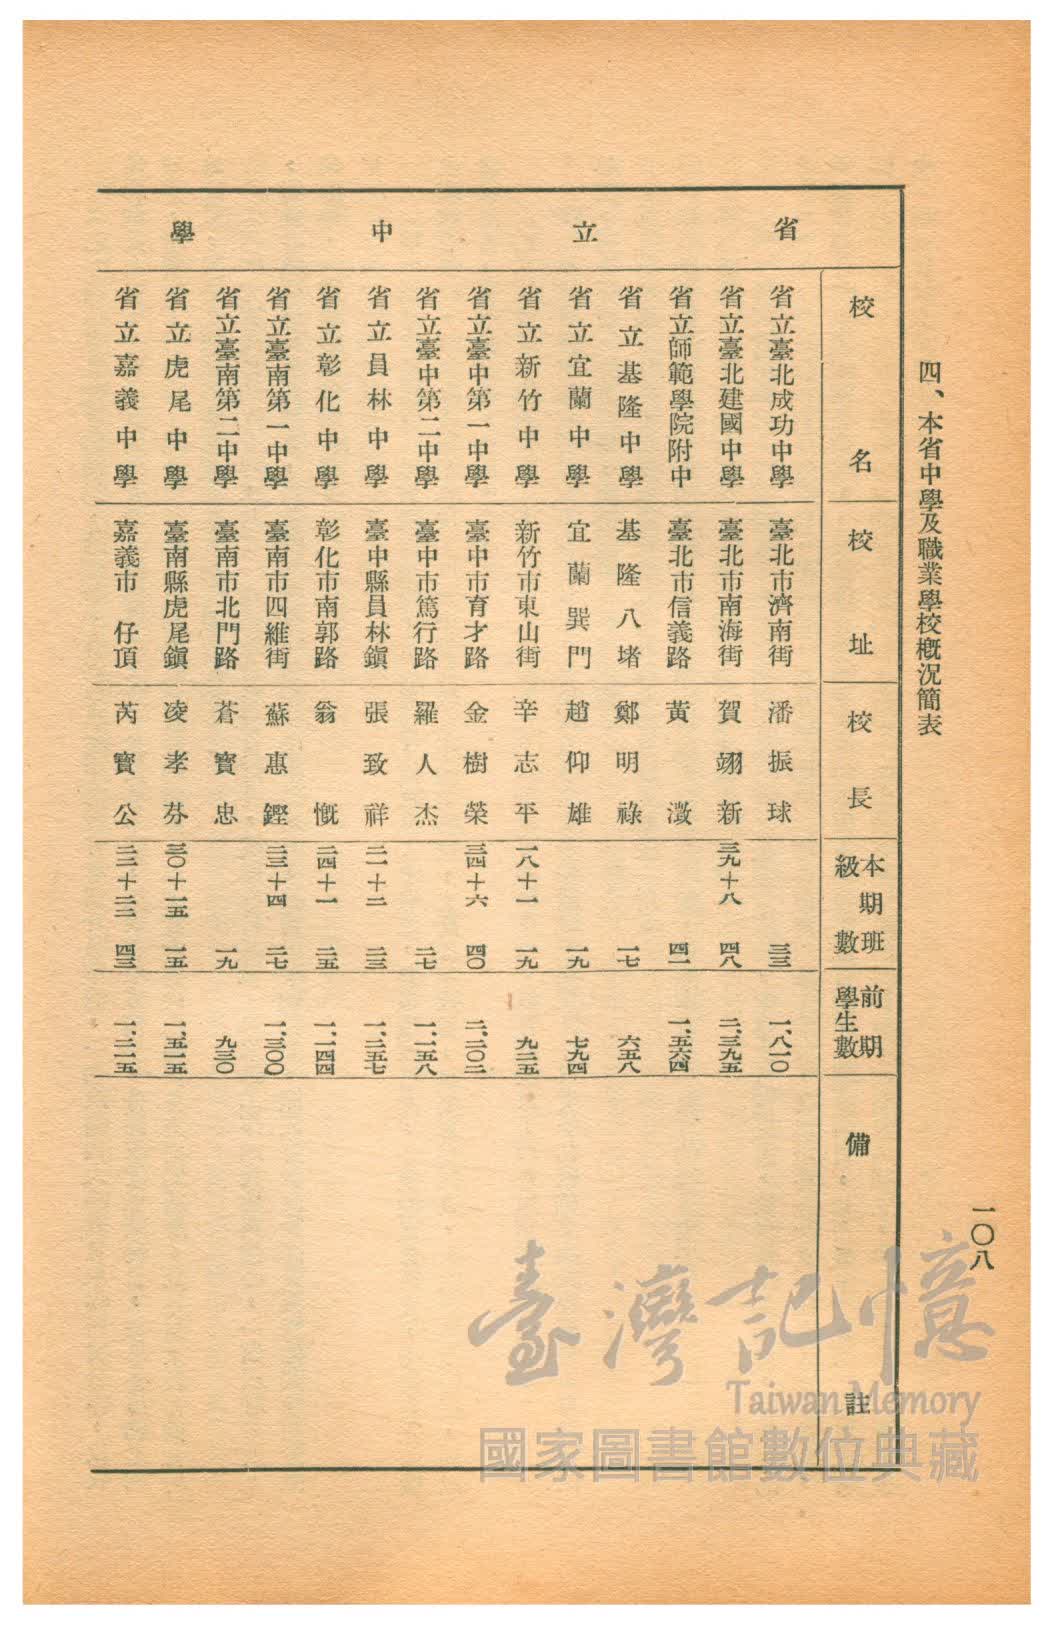 四、本省中學及職業學校概況簡表
一〇八
校名 校址 校長 本期班級數 前期學生數 備註
省立中學
省立臺北成功中學 臺北市濟南街 潘振球 三三 一、八一〇
省立臺北建國中學 臺北市南海街 賀翊新 三九十八 四八 二、三九五
省立師範學院附中 臺北市信義路 黃澂 四一 一、五六四
省立基隆中學 基隆八堵 鄭明祿 一七 六五八
省立宜蘭中學 宜蘭巽門 趙仰雄 一九 七九四
省立新竹中學 新竹市東山街 辛志平 一八十一 一九 九二五
省立臺中第一中學 臺中市育才路 金樹榮 三四十六 四〇 二、二〇二
省立臺中第二中學 臺中市篤行路 羅人杰 二七 一、一五八
省立員林中學 臺中縣員林鎮 張致祥 二一十二 二三 一、二五七
省立彰化中學 彰化市南郭路 翁慨 二四十一 二五 一、一四四
省立臺南第一中學 臺南市四維街 蘇惠鏗 二三十四 二七 一、三〇〇
省立臺南第二中學 臺南市北門路 蒼寶忠 一九 九三〇
省立虎尾中學 臺南縣虎尾鎮 凌孝芬 三〇十一五 一五 一、五一五
省立嘉義中學 嘉義市仔頂 芮寶公 二三十二二 四三 一、二一五
臺灣記憶
Taiwan Memory
國家圖書館數位典藏